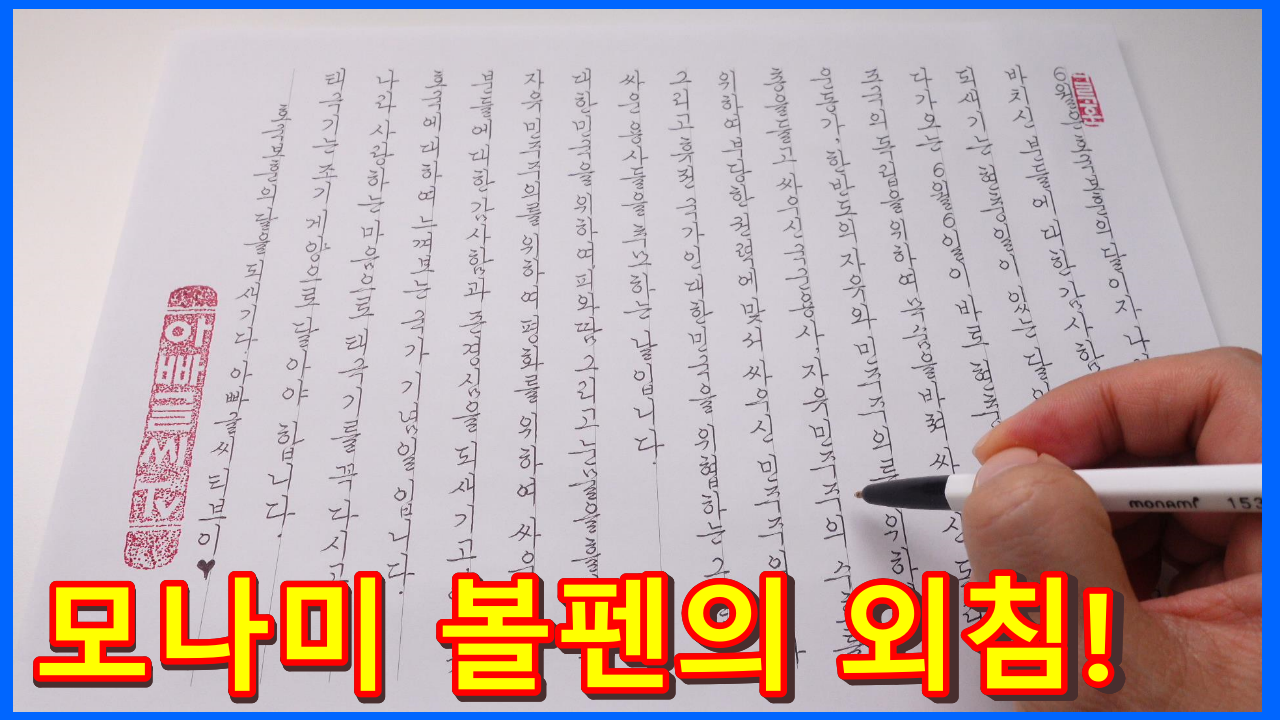 6월은 호국보훈의 달이자 나
바치신 분들에 대한 감사함
되새기는 현충일이 있는 달이
다가오는 6월 6일이 바로 현충
조국의 독립을 위하여 목숨을 바쳐 싸
운동가, 한반도의 자유와 민주주의를 위하
총칼들고 싸우신 국군용사 자유 민주주의
위하여 부당한 권력에 맞서 싸우신 민주주의
그리고 휴전국가인 대한민국을 위협하는
싸운 용사들을 추모하는 날입니다.
대한민국을 위하여 피와 땀 그리고 눈물을
자유 민주주의를 위하여 평화를 위하여 싸우
분들에 대한 감사함과 존경심을 되새기고
호국에 대하여 느껴보는 국가기념일입니다.
나라 사랑하는 마음으로 태극기를 꼭 다시고
태극기는 조기 게양으로 달아야 합니다.
호국보훈의 달을 되새기다. 아빠글씨티브이♥
아빠글씨
monami 153
모나미 볼펜의 외침!